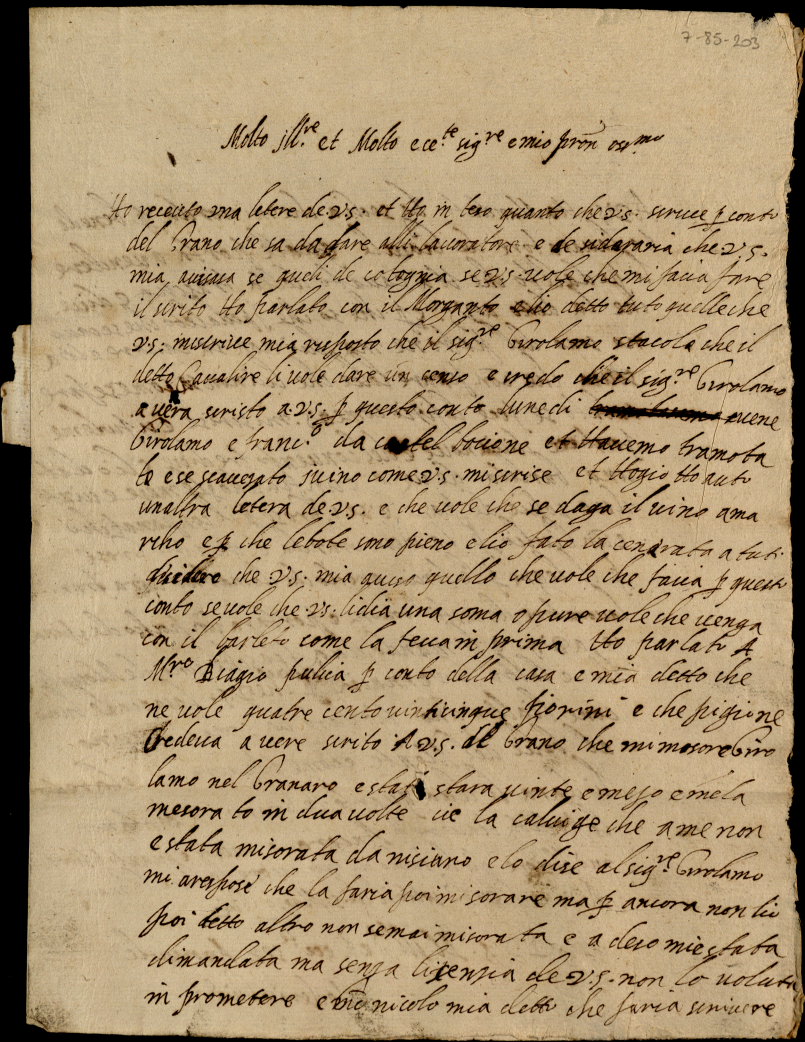 7-85-203
Molto Ill.re et Molto ece.te sig.re e mio pron oss.mo
Ho receuto una letere de V.S. et Ho in teso quanto che V.S. scrive p conto
del Grano che sa da dare alli lavoratore e de sideraria che V.S.
mia avisasa se queli de cotognia se V.S. vole che mi facia fare
il scrito Ho parlato con il Morganto elio detto tuto quelle che
V.S. miscrive mia risposto che il sig.re Girolamo stacola che il
detto Cavalire li vole dare un censo e credo che il sig.re Girolamo
avera scristo a V.S. p questo conto lunedi evene
Girolamo e franc.o da castel bocione et Havemo tramota
to e se scaugato ivino come V.S. miscrise et Hogio Ho auto
unaltra letera de V.S. e che vole che se daga il vino ama
riho e p che lebote sono pieno elio fato la cenerata a tuti
che V.S. mia aviso quello che vole che facia p questo
conto se vole che V.S. lidia una soma o pure vole che venga
con il barleto come la feva in prima Ho parlato A
M.ro Biagio pulcia p conto della casa e mia detto che
ne vole quatre cento vinticinque fiorini e che pigione
Credeva avere scrito A V.S. del Grano che mi mesore Giro
lamo nel Granaro e stara vinte e mezo e mela
mesora to in dua volte cie la calvige che ame non
e stata misorata da nisiuno elo dise al sig.re Girolamo
mi arespose che la faria poi misorare ma p ancora non lio
poi detto altro non se mai misora ta e a deso mie stata
dimandata ma senza licenzia de V.S. non lo voluta
in prometere e nicolo mia detto che faria scrivere